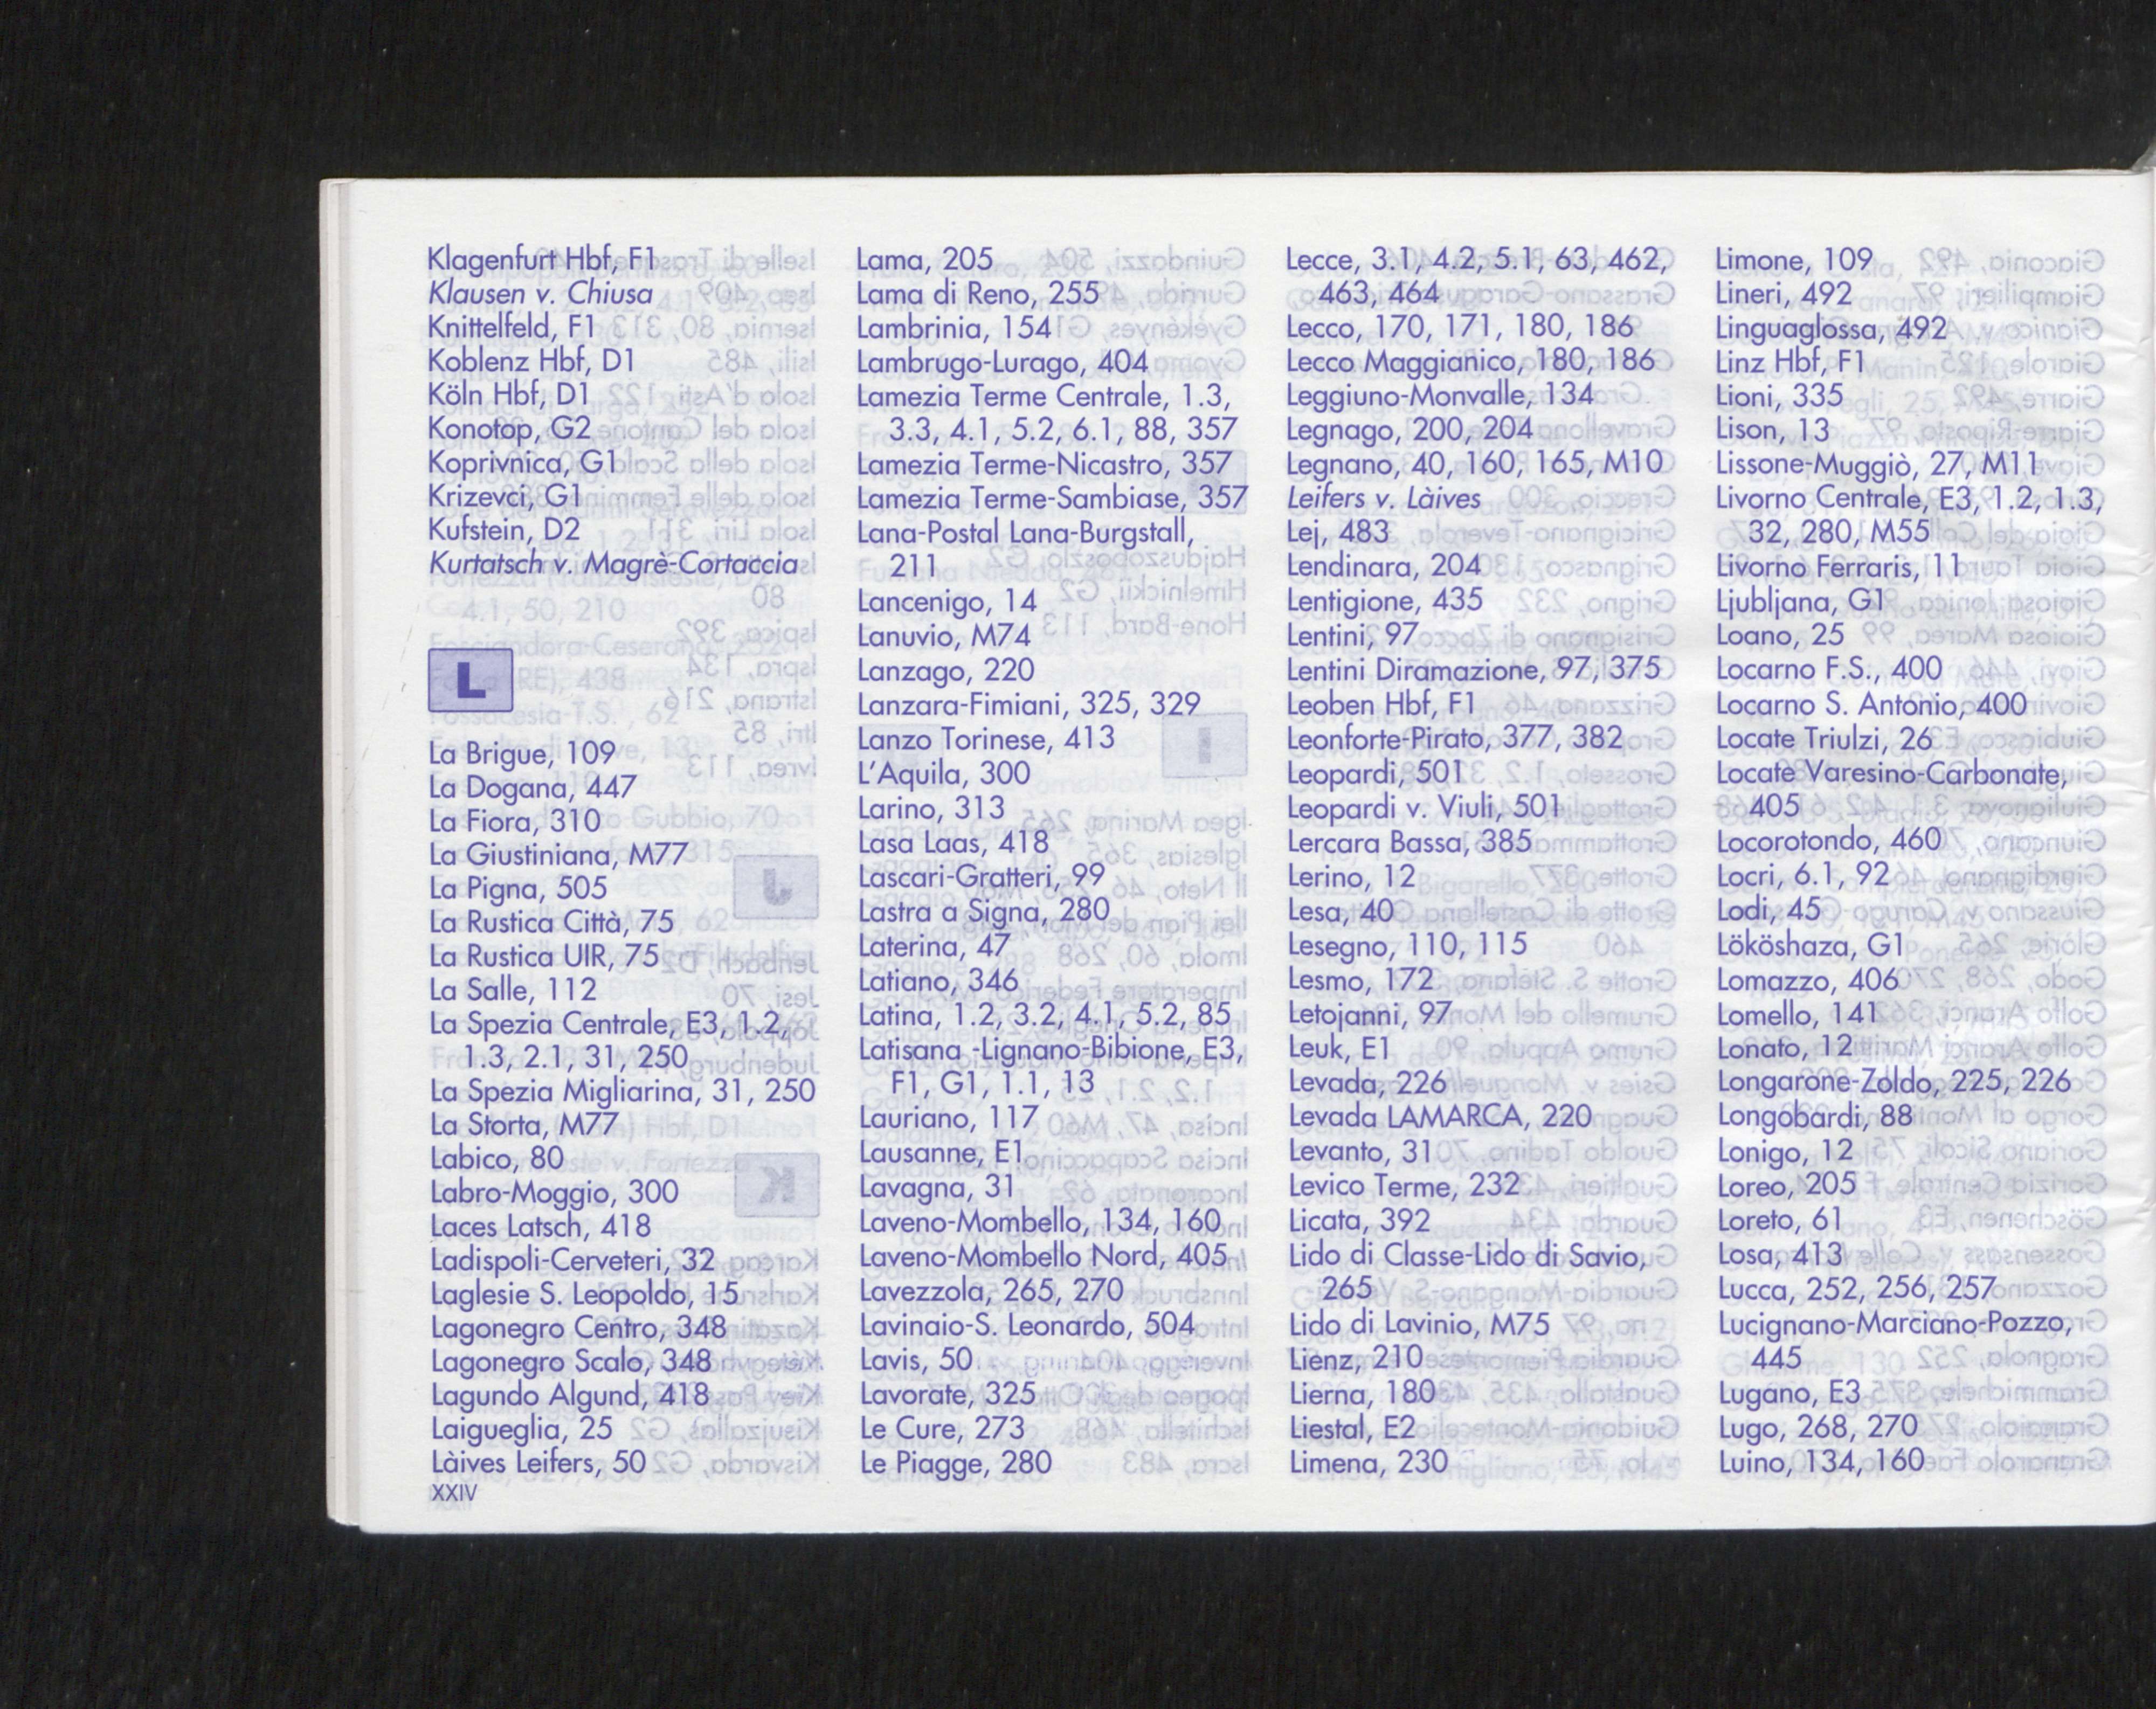 Klagenfurt Hbf, F1
Klausen v. Chiusa
Knittelfeld, F1
Koblenz Hbf, D1
Köln Hbf, D1
Konotop, G2
Koprivnica, G1
Krizevci, G1
Kufstein, D2
Kurtatsch v. Magrè-Cortaccia
L
La Brigue, 109
La Dogana, 447
La Fiora, 310
La Giustiniana, M77
La Pigna, 505
La Rustica Città, 75
La Rustica UIR, 75
La Salle, 112
La Spezia Centrale, E3, 1.2,
1.3, 2.1, 31, 250
La Spezia Migliarina, 31, 250
La Storta, M77
Labico, 80
Labro-Moggio, 300
Laces Latsch, 418
Ladispoli-Cerveteri, 32
Laglesie S. Leopoldo, 15
Lagonegro Centro, 348
Lagonegro Scalo, 348
Lagundo Algund, 418
Laigueglia, 25
Làives Leifers, 50
XXIV
Lama, 205
Lama di Reno, 255
Lambrinia, 154
Lambrugo-Lurago, 404
Lamezia Terme Centrale, 1.3,
3.3, 4.1, 5.2, 6.1, 88, 357
Lamezia Terme-Nicastro, 357
Lamezia Terme-Sambiase, 357
Lana-Postal Lana-Burgstall,
211
Lancenigo, 14
Lanuvio, M74
Lanzago, 220
Lanzara-Fimiani, 325, 329
Lanzo Torinese, 413
L'Aquila, 300
Larino, 313
Lasa Laas, 418
Lascari-Gratteri, 99
Lastra a Signa, 280
Laterina, 47
Latiano, 346
Latina, 1.2, 3.2, 4.1, 5.2, 85
Latisana -Lignano-Bibione, E3,
F1, G1, 1.1, 13
Lauriano, 117
Lausanne, E1
Lavagna, 31
Laveno-Mombello, 134, 160
Laveno-Mombello Nord, 405
Lavezzola, 265, 270
Lavinaio-S. Leonardo, 504
Lavis, 50
Lavorate, 325
Le Cure, 273
Le Piagge, 280
Lecce, 3.1, 4.2, 5.1, 63, 462,
463, 464
Lecco, 170, 171, 180, 186
Lecco Maggianico, 180, 186
Leggiuno-Monvalle, 134
Legnago, 200, 204
Legnano, 40, 160, 165, M10
Leifers v. Làives
Lej, 483
Lendinara, 204
Lentigione, 435
Lentini, 97
Lentini Diramazione, 97, 375
Leoben Hbf, F1
Leonforte-Pirato, 377, 382
Leopardi, 501
Leopardi v. Viuli, 501
Lercara Bassa, 385
Lerino, 12
Lesa, 40
Lesegno, 110, 115
Lesmo, 172
Letojanni, 97
Leuk, E1
Levada, 226
Levada LAMARCA, 220
Levanto, 31
Levico Terme, 232
Licata, 392
Lido di Classe-Lido di Savio,
265
Lido di Lavinio, M75
Lienz, 210
Lierna, 180
Liestal, E2
Limena, 230
Limone, 109
Lineri, 492
Linguaglossa, 492
Linz Hbf, F1
Lioni, 335
Lison, 13
Lissone-Muggiò, 27, M11
Livorno Centrale, E3, 1.2, 1.3,
32, 280, M55
Livorno Ferraris, 11
Ljubljana, G1
Loano, 25
Locarno F.S., 400
Locarno S. Antonio, 400
Locate Triulzi, 26
Locate Varesino-Carbonate,
405
Locorotondo, 460
Locri, 6.1, 92
Lodi, 45
Lököshaza, G1
Lomazzo, 406
Lomello, 141
Lonato, 12
Longarone-Zoldo, 225, 226
Longobardi, 88
Lonigo, 12
Loreo, 205
Loreto, 61
Losa, 413
Lucca, 252, 256, 257
Lucignano-Marciano-Pozzo,
445
Lugano, E3
Lugo, 268, 270
Luino, 134, 160